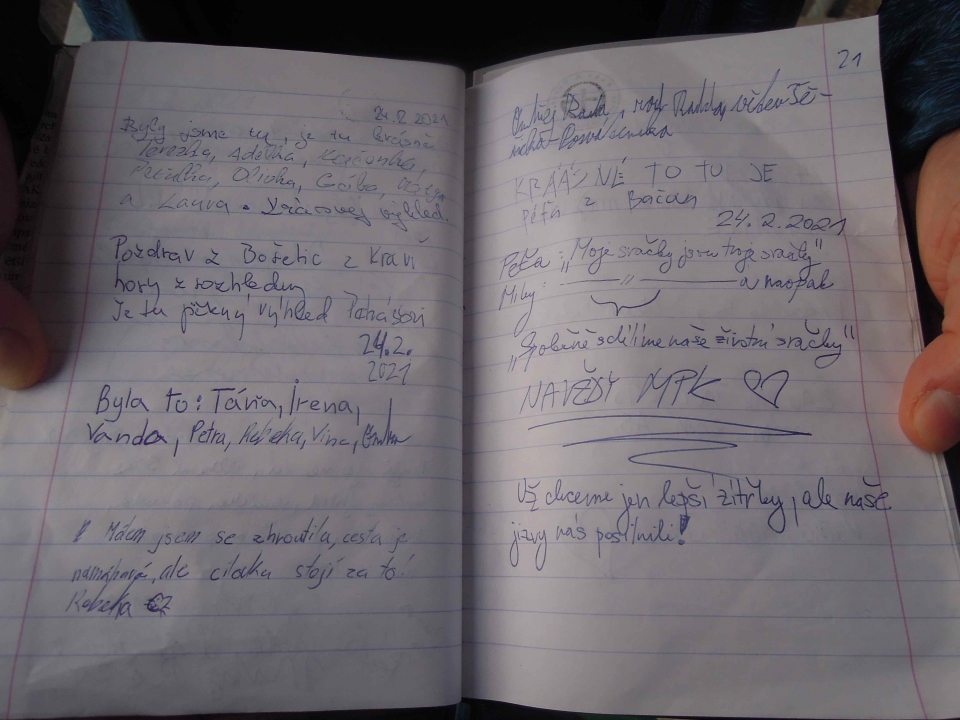 24.2.2021
Byly jsme tu, je tu krásně
Terezka, Adélka, Kačenka,
Olivka, Gábo,
a Laura. výhled.
Pozdrav z Bořetic z Kraví
hory z rozhledny
Je tu pěkný výhled
24.2.
2021
Byla to: Táňa, Irena,
Vanda, Petra, Rebeka, Vina,
Málem jsem se zhroutila, cesta je
namáhavá, ale cílovka stojí za to!
Rebeka
21
Ondřej
KRÁÁZNÉ TO TU JE
Péťa z
24.2.2021
Péťa: „Moje sračky jsou tvoje sračky"
Miky: —— " —— a naopak
„Společně sdílíme naše životní sračky"
NAVŽDY MPK ♡
Už chceme jen lepší zítřky, ale naše
jizvy nás posílnili!